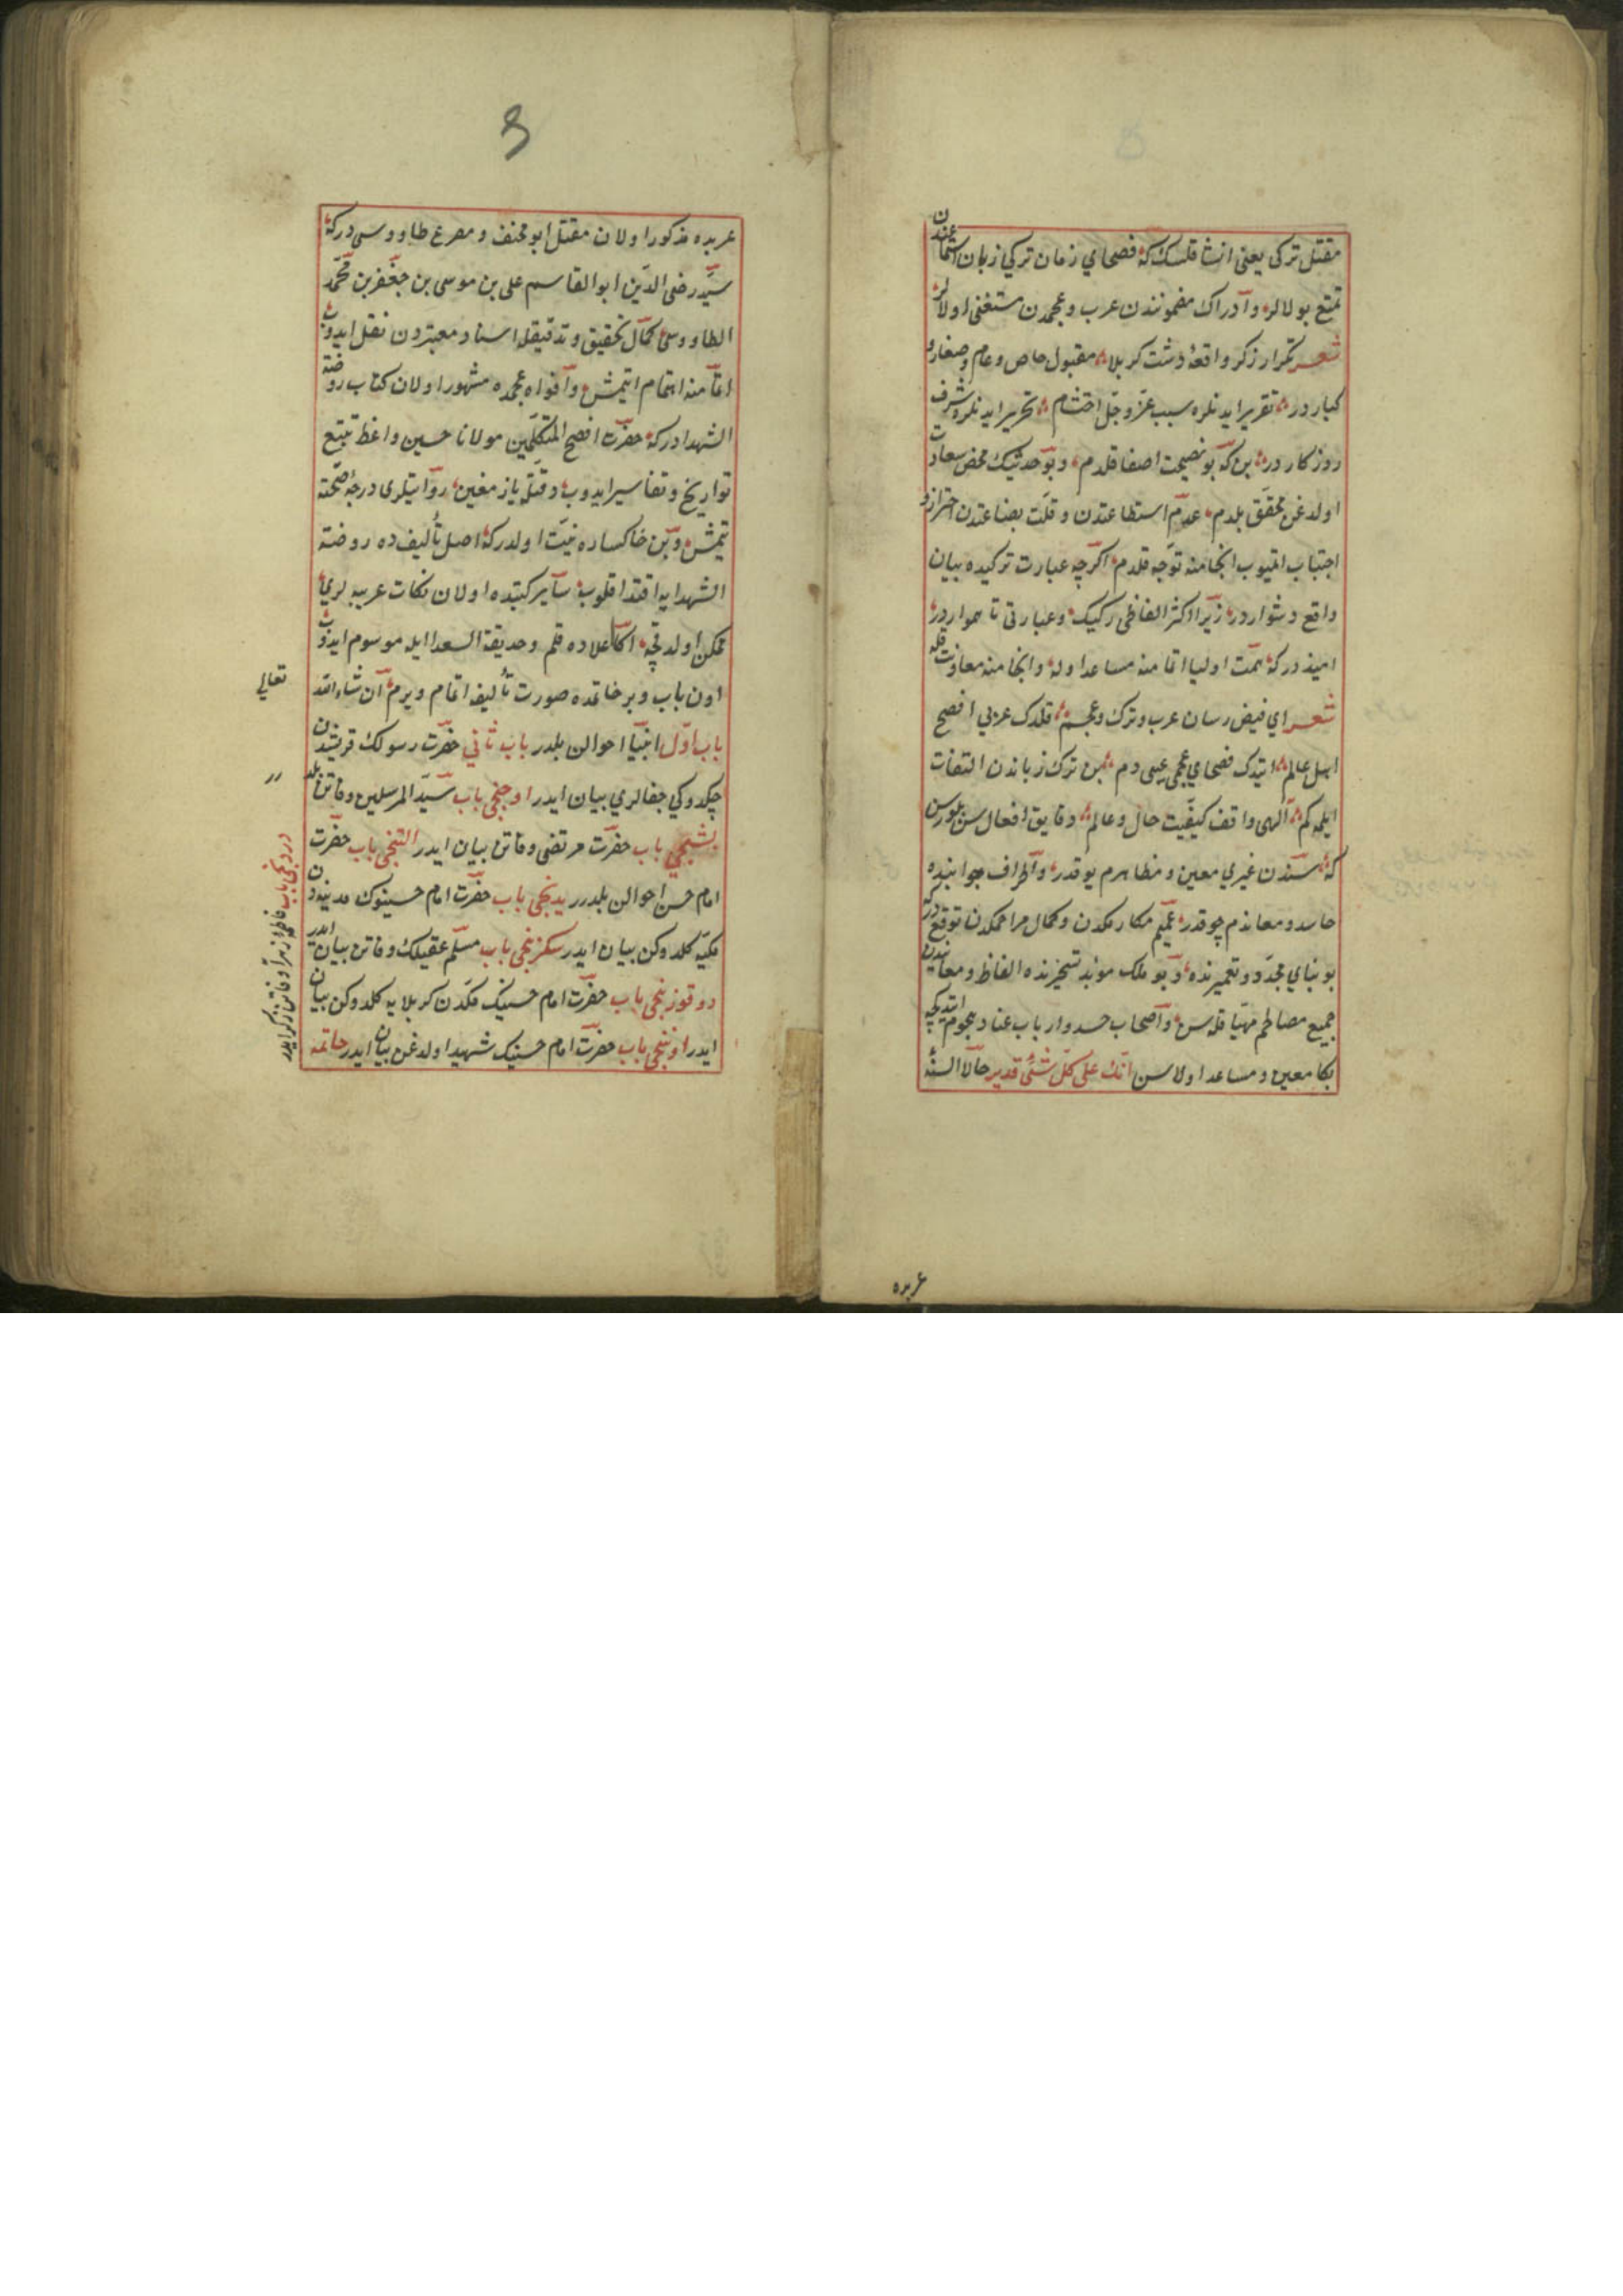 مقتل تركى يعنى انشا قلسك كه فصحاي زمان تركي زبان استماعندن
تمتع بولالر وادراك مضمونندن عرب وعجمدن مستغنى اولالر
شعر تكرار ذكر واقعۀ دشت كربلا مقبول خاص وعام وصغار و
كباردر تقرير ايدنلره سبب عز وجل احتشام تحرير ايدنلره شرف
روزكاردر بن كه بو نصيحت اصغا قلدم وبو حديثك محض سعادت
اولدغن محقق بلدم عدم استطاعتدن وقلت بضاعتدن احتراز و
اجتناب اتميوب انجامنه توجه قلدم اكرچه عبارت تركيده بيان
واقع دشواردر زيرا اكثر الفاظى ركيك وعبارتى ناهمواردر
اميددركه همت اوليا اتمامنه مساعد اوله وانجامنه معاونت قله
شعر اي فيض رسان عرب وترك وعجم قلدك عربي افصح
اهل عالم ايتدك فصحاي عجمى عيسى دم بن ترك زباندن التفات
ايلمه كم الهى واقف كيفيت حال وعالم دقايق افعال سن بلورسن
كه سندن غيري معين ومظاهرم يوقدر واطراف وجوانبده
حاسد ومعاندم چوقدر عميم مكارمكدن وكمال مراحمكدن توقع دركه
بو بناي مجدد وتعميرنده وبو ملك موبد تسخيرنده الفاظ ومعانيدن
جميع مصالحم مهيا قله سن واصحاب حسد وارباب عناد هجوم ايتديكچه
بكا معين ومساعد اولاسن انك على كل شئ قدير حالا السنۀ
عربده
عربده مذكور اولان مقتل ابو مخنف ومصرع طاووسى دركه
سيد رضى الدين ابوالقاسم على بن موسى بن جعفر بن محمد
الطاووسى كمال تحقيق وتدقيقله اسناد معتبردن نقل ايدوب
اتمامنه اهتمام ايتمش وافواه عجمده مشهور اولان كتاب روضة
الشهدادركه حضرت افصح المتكلمين مولانا حسين واعظ تتبع
تواريخ وتفاسير ايدوب دقتله يازمغين روايتلرى درجۀ صحته
يتمش وبن خاكساره نيت اولدركه اصل تأليفده روضة
الشهدايه اقتدا قلوب ساير كتبده اولان نكات غريبه لري
ممكن اولدقچه اكا علاوه قلم وحديقة السعدا ايله موسوم ايدوب
اون باب وبر خاتمده صورت تأليفه اتمام ويرم ان شاء الله
تعالي
باب اول انبيا احوالن بلدر باب ثاني حضرت رسولك قريشدن
چكدوكي جفالري بيان ايدر اوچنجى باب سيد المرسلين وفاتن بلدرر
دردنجى باب فاطمۀ زهرا وفاتن ذكر ايدر
بشنجي باب حضرت مرتضى وفاتن بيان ايدر التنجى باب حضرت
امام حسن احوالن بلدرر يدنجى باب حضرت امام حسينوك مدينه دن
مكيه كلدوكن بيان ايدر سكزنجى باب مسلم عقيلك وفاتن بيان ايدر
دوقوزنجى باب حضرت امام حسينك مكدن كربلايه كلدوكن بيان
ايدر اوننجى باب حضرت امام حسينك شهيد اولدغن بيان ايدر خاتمه